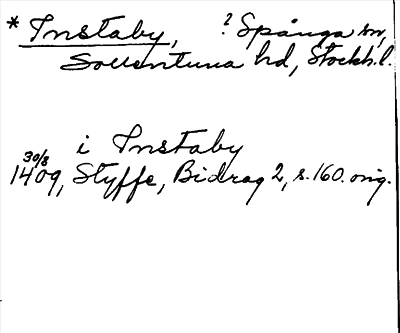 * Instaby, ? Spånga sn,
Sollentuna hd, Stockh.l.
i Instaby
30/8
1409, Styffe, Bidrag 2, s. 160. orig.